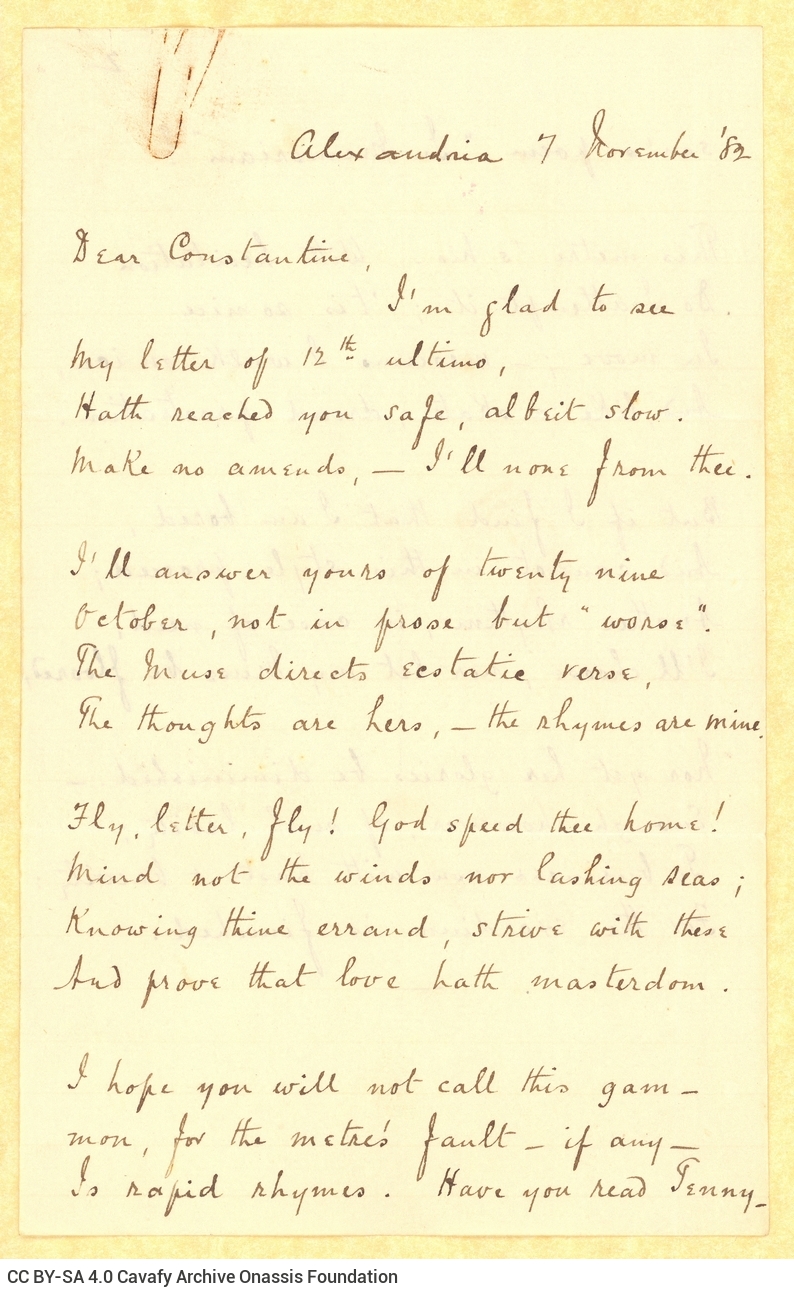 Alexandria 7 November '82
Dear Constantine,
I'm glad to see
My letter of 12th ultimo,
Hath reached you safe, albeit slow.
Make no amends, — I'll none from thee.
I'll answer yours of twenty nine
October, not in prose but "worse".
The Muse directs ecstatic verse,
The thoughts are hers, — the rhymes are mine.
Fly, letter, fly! God speed thee home!
Mind not the winds nor lashing seas;
Knowing thine errand, strive with these
And prove that love hath masterdom.
I hope you will not call this gam-
mon, for the metre's fault — if any —
Is rapid rhymes. Have you read Tenny-
CC BY-SA 4.0 Cavafy Archive Onassis Foundation